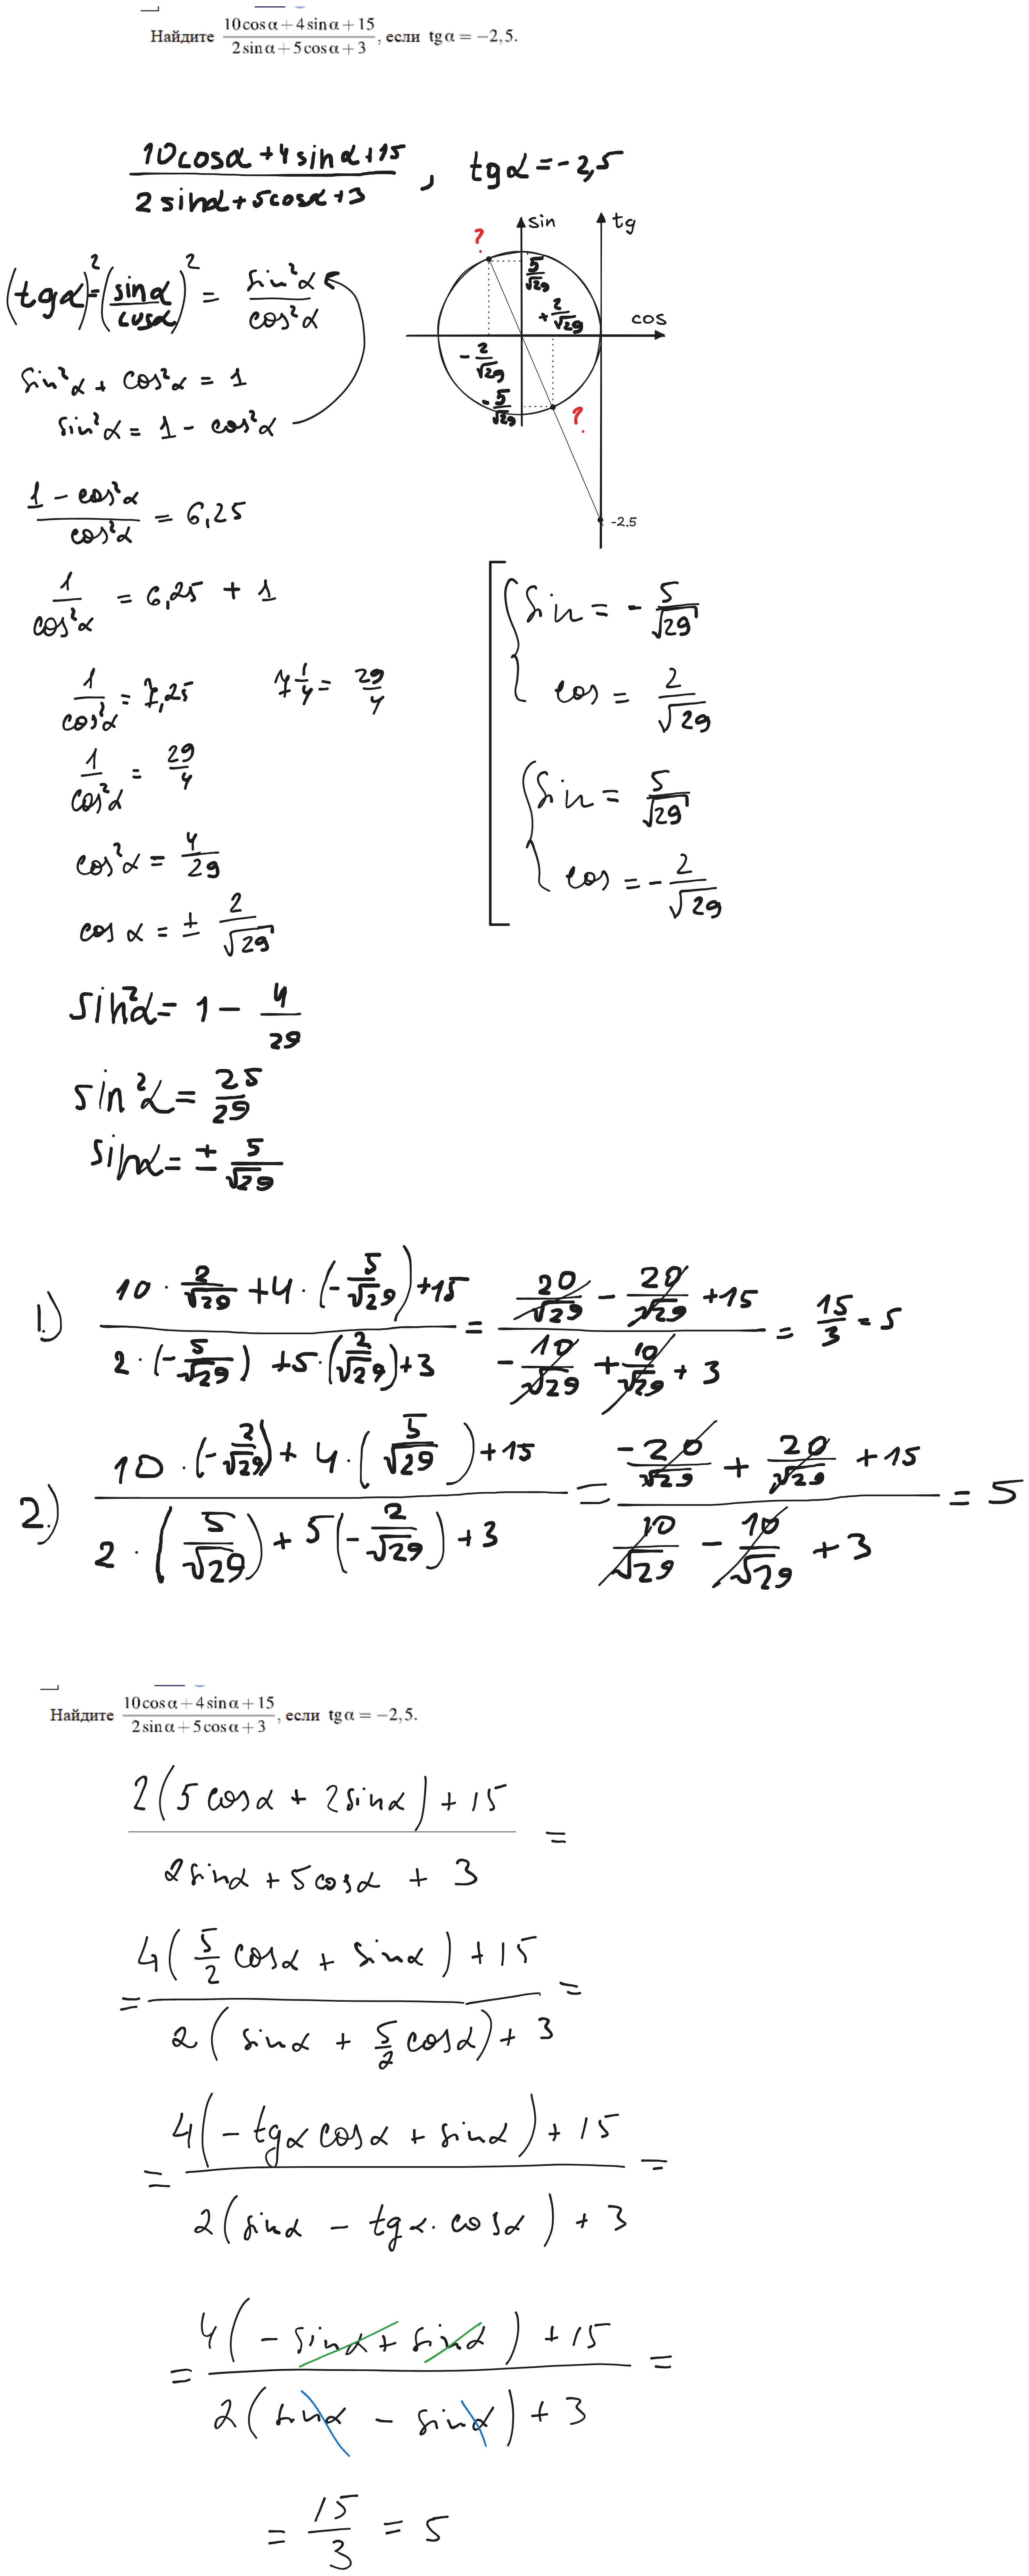 Найдите (10cosα+4sinα+15)/(2sinα+5cosα+3), если tgα=−2,5.
(10cosα+4sinα+15)/(2sinα+5cosα+3), tgα=-2,5
sin tg
?
5/√29
+2/√29
cos
-2/√29
-5/√29
?
-2.5
(tgα)²=(sinα/cosα)² = sin²α/cos²α
sin²α + cos²α = 1
sin²α = 1 - cos²α
(1 - cos²α)/cos²α = 6,25
1/cos²α = 6,25 + 1
1/cos²α = 7,25 7 1/4 = 29/4
1/cos²α = 29/4
cos²α = 4/29
cos α = ± 2/√29
sin²α = 1 - 4/29
sin²α = 25/29
sinα = ± 5/√29
sin = - 5/√29
cos = 2/√29
sin = 5/√29
cos = - 2/√29
1.) (10 · 2/√29 + 4 · (-5/√29) + 15)/(2 · (-5/√29) + 5 · (2/√29) + 3) = (20/√29 - 20/√29 + 15)/(-10/√29 + 10/√29 + 3) = 15/3 = 5
2.) (10 · (-2/√29) + 4 · (5/√29) + 15)/(2 · (5/√29) + 5(-2/√29) + 3) = (-20/√29 + 20/√29 + 15)/(10/√29 - 10/√29 + 3) = 5
Найдите (10cosα+4sinα+15)/(2sinα+5cosα+3), если tgα=−2,5.
(2(5cosα + 2sinα) + 15)/(2sinα + 5cosα + 3) =
= (4(5/2 cosα + sinα) + 15)/(2(sinα + 5/2 cosα) + 3) =
= (4(-tgα cosα + sinα) + 15)/(2(sinα - tgα · cosα) + 3) =
= (4(-sinα + sinα) + 15)/(2(sinα - sinα) + 3) =
= 15/3 = 5